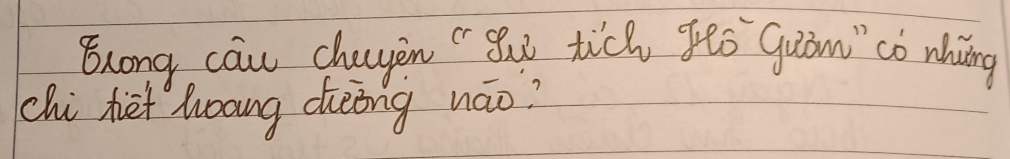 Trong câu chuyện “ Sự tích Hồ Gươm” có những
chi tiết hoang đường nào?